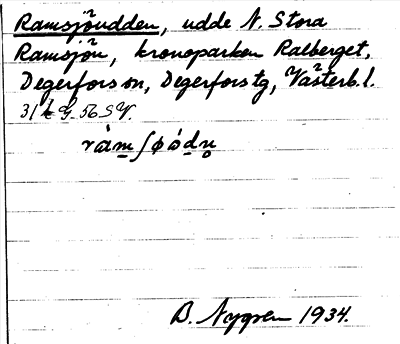 Ramsjöudden, udde N. Stora
Ramsjön, kronoparken Ralberget,
Degerfors sn, Degerfors tg, Västerb. l.
31 G. 56 SV.
B. Nygren 1934.